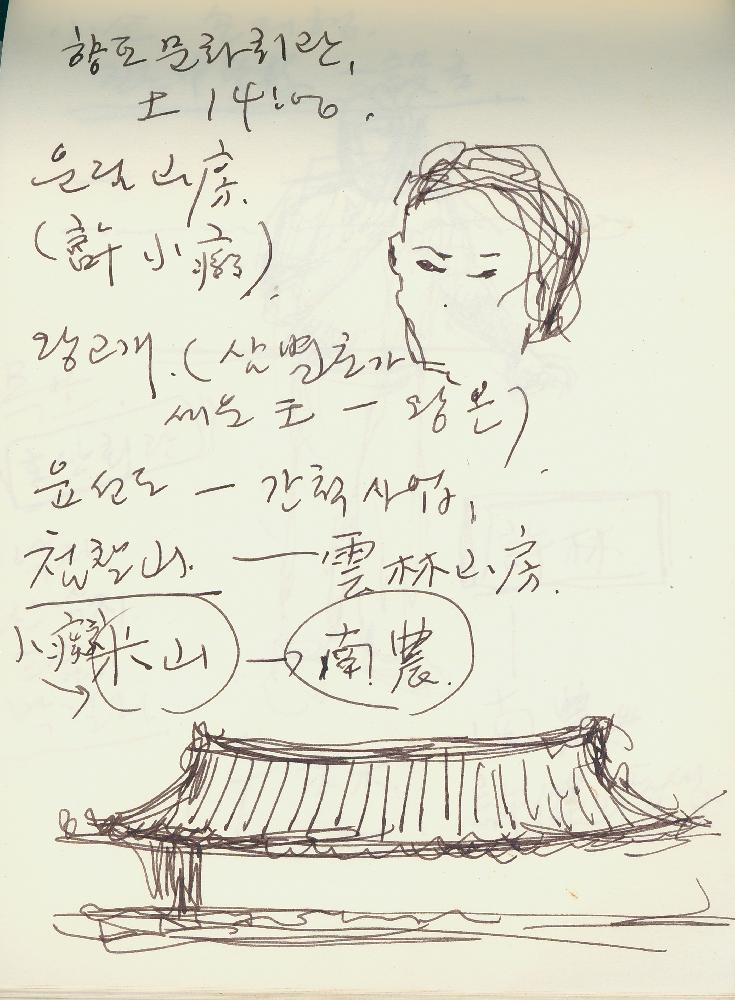 향토문화회관,
土 14:00.
운림山房.
(許小痴).
왕고개.(삼별초가
세운 王 - 왕온).
윤선도 - 간척사업,
첨찰山. — 雲林山房.
小痴 米山 → 南農.